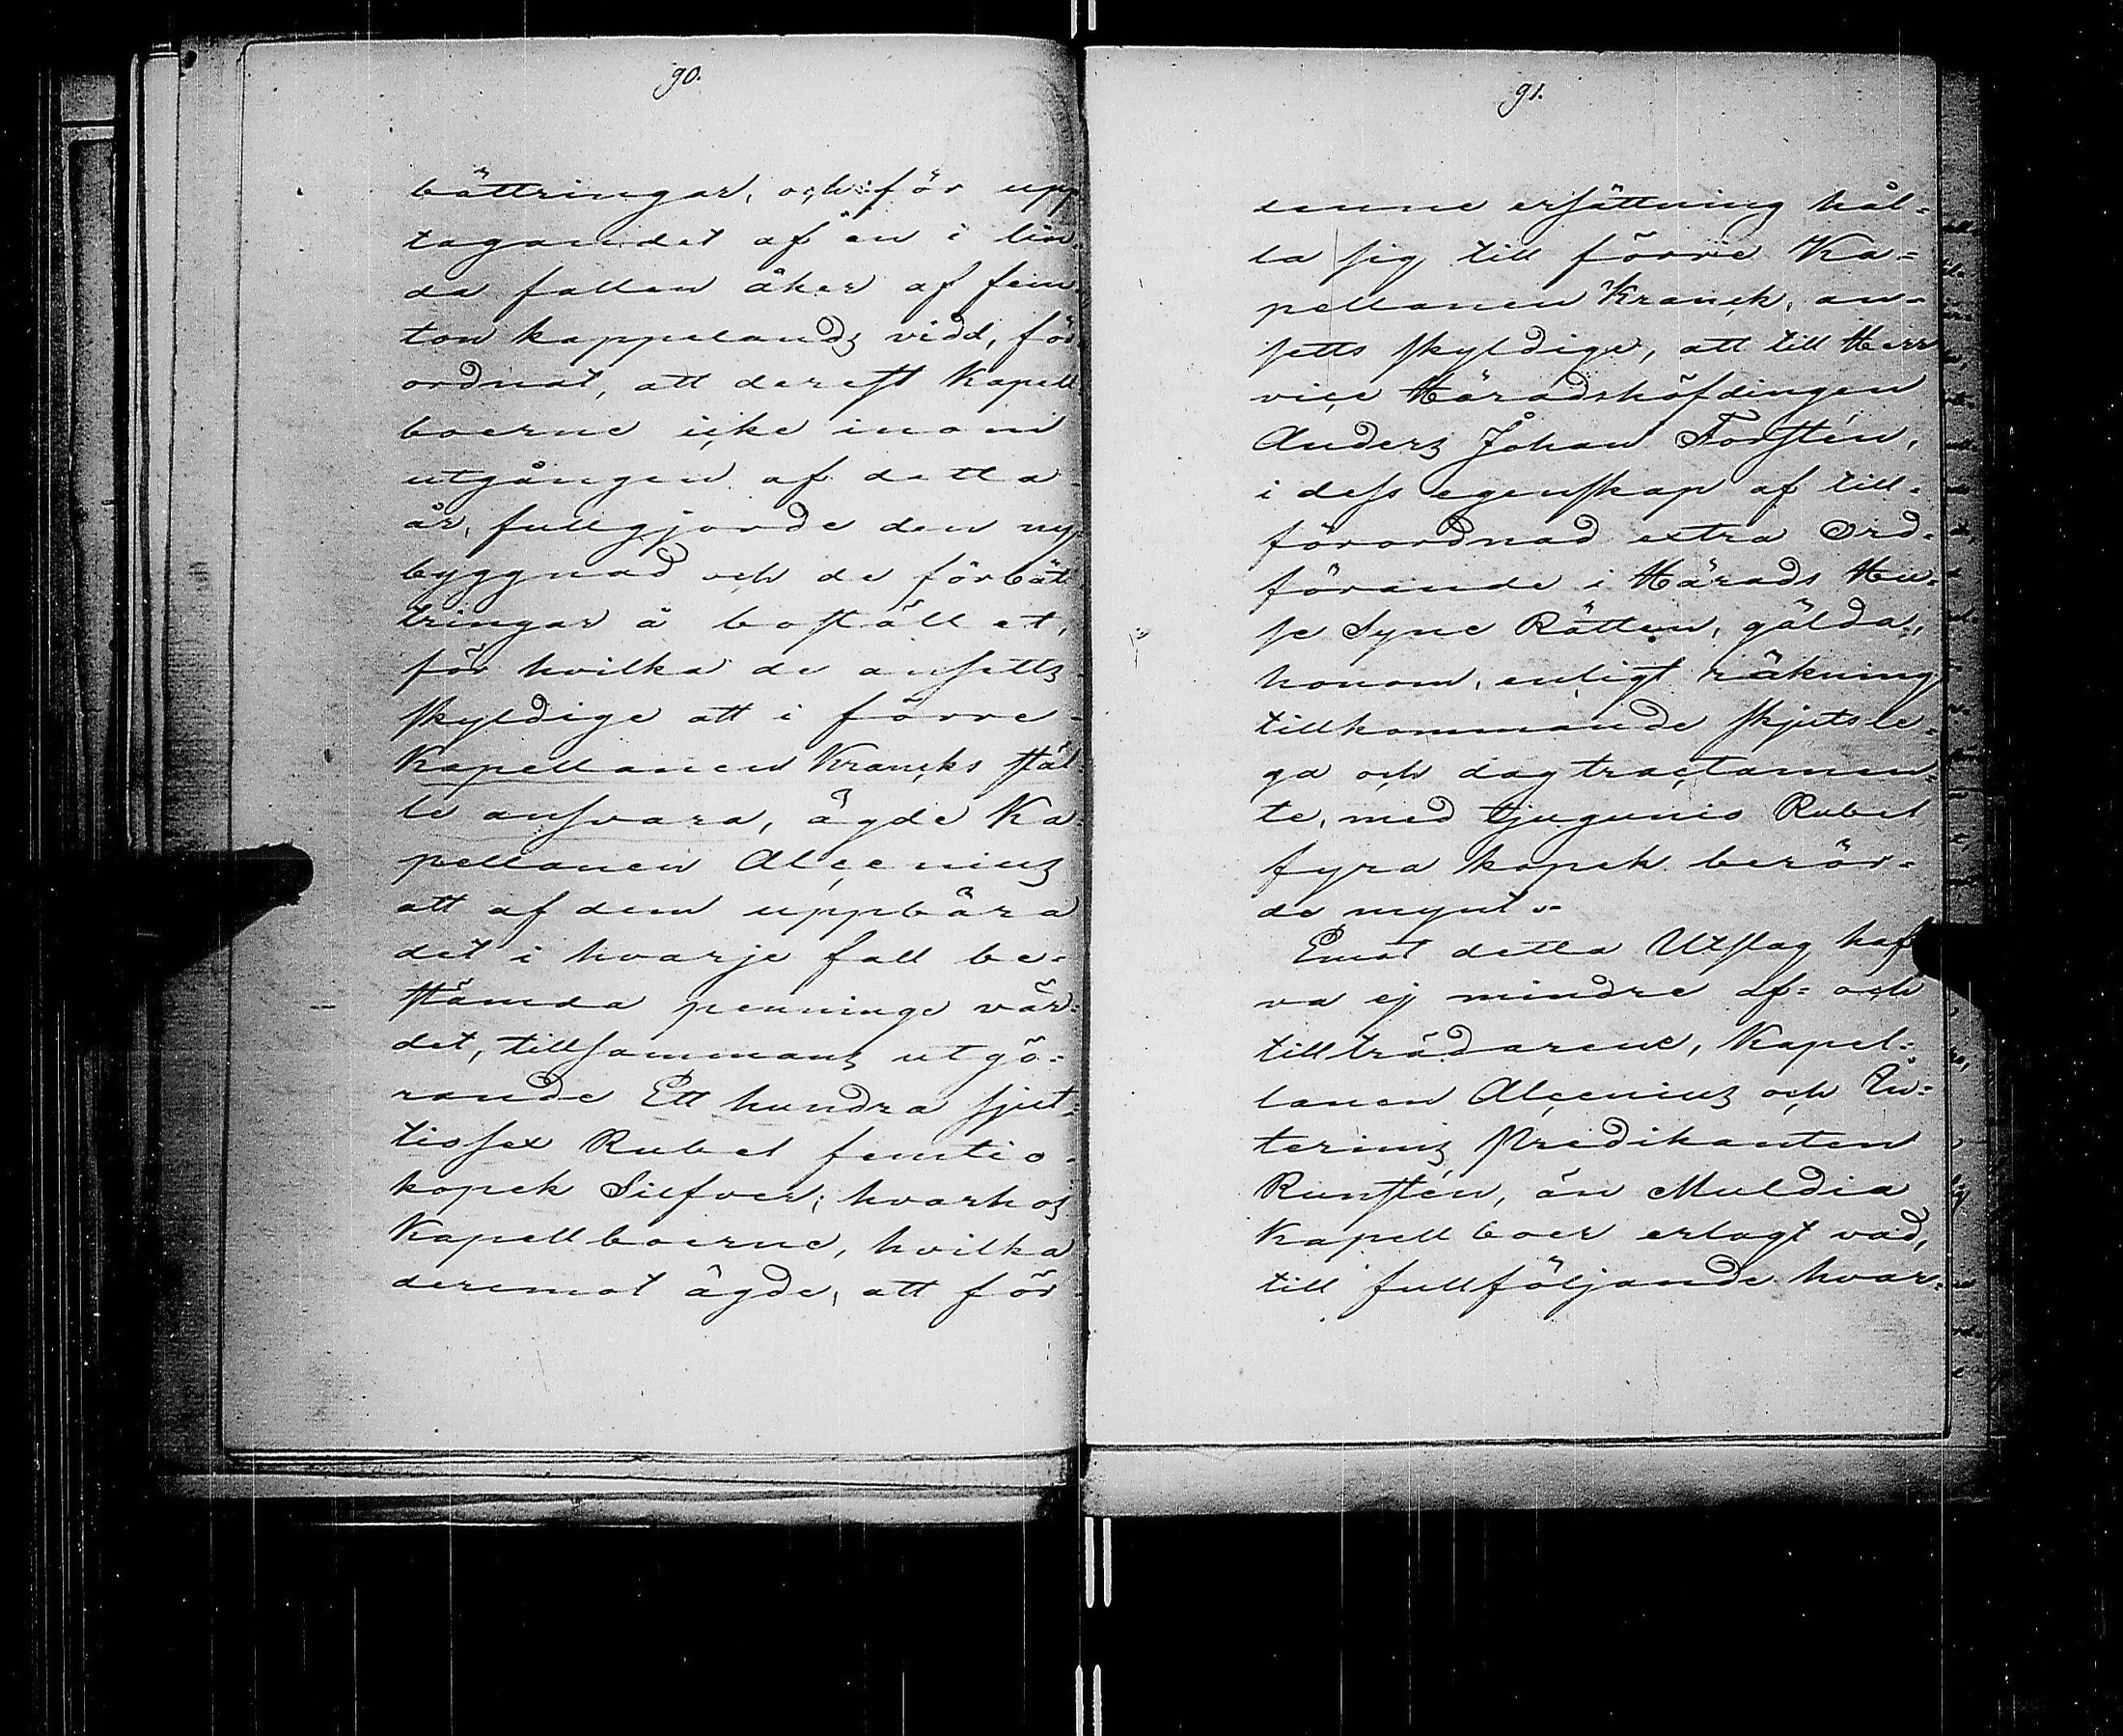 90.
bättringar, och för upp
tagandet af en i lin-
da fallen åker af fem-
ton kappelands vidd, för
ordnat, att derest Kapell
boerne icke inom
utgången af detta
år, fullgjorde den ny
byggnad och de förbät
tringar å bostället,
för hvilka de ansetts
skyldige att i förre
Kapellanen Krancks stäl-
le ansvara, ägde Ka-
pellanen Alcenius
att af dem uppbära
det i hvarje fall be-
stämda penninge vär-
det, tillsammans utgö-
rande Ett hundra sjut-
tiosex Rubel femtio
kopek Silfver; hvarhos
Kapellboerne, hvilka
deremot ägde, att för
91.
denne ersättning hål-
la sig till förre Ka-
pellanen Kranck, an-
setts skyldige, att till Herr
vice Häradshöfdingen
Anders Johan Forstén,
i dess egenskap af till-
förordnad extra Ord-
förande i Härads Hu-
se Syne Rätten, gälda,
honom, enligt räkning
tillkommande skjutsle-
ga och dagtractamen-
te, med tjugunio Rubel
fyra kopek berör-
de mynt.
Emot detta Utslag haf
va ej mindre af- och
tillträdarene, Kapel-
lanen Alcenius och In-
terims Predikanten
Runstén, än Muldia
Kapellboer erlagt vad,
till fullföljande hvar-